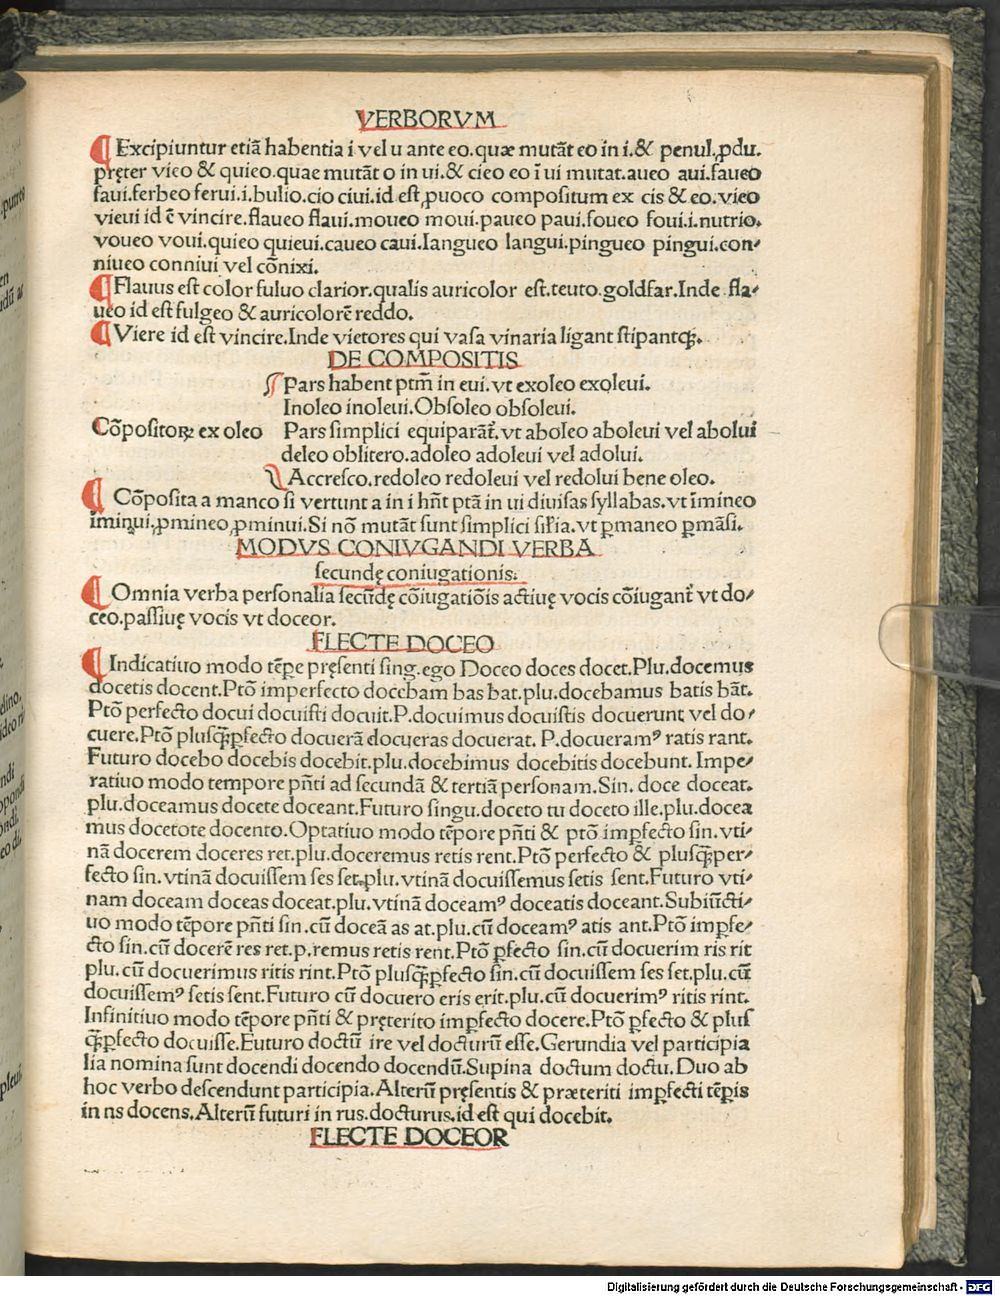 VERBORVM
¶ Excipiuntur etiã habentia i vel u ante eo.quæ mutãt eo in i.& penul.ꝓdu.
pręter vieo & quieo.quae mutãt o in ui.& cieo eo ĩ ui mutat.aueo aui.faueo
faui.ferbeo ferui.i.bulio.cio ciui.id est ꝓuoco compositum ex cis & eo.vieo
vieui id ẽ vincire.flaueo flaui.moueo moui.paueo paui.foueo foui.i.nutrio.
voueo voui.quieo quieui.caueo caui.langueo langui.pingueo pingui.con-
niueo conniui vel cõnixi.
¶ Flauus est color fuluo clarior.qualis auricolor est.teuto.goldfar.Inde fla-
ueo id est fulgeo & auricolorẽ reddo.
¶ Viere id est vincire.Inde vietores qui vasa vinaria ligant stipantꝗ.
DE COMPOSITIS
Pars habent ptm̃ in eui.vt exoleo exoleui.
Inoleo inoleui.Obsoleo obsoleui.
Cõpositoꝝ ex oleo Pars simplici equiparãt̃.vt aboleo aboleui vel abolui
deleo oblitero.adoleo adoleui vel adolui.
Accresco.redoleo redoleui vel redolui bene oleo.
¶ Cõposita a manco si vertunt a in i hñt ptã in ui diuisas syllabas.vt ĩmineo
ĩminui.ꝓmineo ꝓminui.Si nõ mutãt sunt simplici sil̃ia.vt ꝑmaneo ꝑmãsi.
MODVS CONIVGANDI VERBA
secundę coniugationis.
¶ Omnia verba personalia secũdę cõiugatiõis actiuę vocis cõiugant̃ vt do-
ceo.passiuę vocis vt doceor.
FLECTE DOCEO
¶ Indicatiuo modo tẽpe pręsenti sing.ego Doceo doces docet.Plu.docemus
docetis docent.Ptõ imperfecto docebam bas bat.plu.docebamus batis bãt.
Ptõ perfecto docui docuisti docuit.P.docuimus docuistis docuerunt vel do-
cuere.Ptõ plusꝗ̃ꝑfecto docuerã docueras docuerat. P.docueramꝰ ratis rant.
Futuro docebo docebis docebit.plu.docebimus docebitis docebunt. Impe-
ratiuo modo tempore pñti ad secundã & tertiã personam.Sin. doce doceat.
plu.doceamus docete doceant.Futuro singu.doceto tu doceto ille.plu.docea
mus docetote docento.Optatiuo modo tẽpore pñti & ptõ imꝑfecto sin.vti-
nã docerem doceres ret.plu.doceremus retis rent.Ptõ perfecto & plusꝗ̃per-
fecto sin.vtinã docuissem ses set.plu.vtinã docuissemus setis sent.Futuro vti-
nam doceam doceas doceat.plu.vtinã doceamꝰ doceatis doceant.Subiũcti-
uo modo tẽpore pñti sin.cũ doceã as at.plu.cũ doceamꝰ atis ant.Ptõ imꝑfe-
cto sin.cũ docerẽ res ret.p.remus retis rent.Ptõ ꝑfecto sin.cũ docuerim ris rit
plu.cũ docuerimus ritis rint.Ptõ plusꝗ̃ꝑfecto sin.cũ docuissem ses set.plu.cũ
docuissemꝰ setis sent.Futuro cũ docuero eris erit.plu.cũ docuerimꝰ ritis rint.
Infinitiuo modo tẽpore pñti & pręterito imꝑfecto docere.Ptõ ꝑfecto & plus
ꝗ̃ꝑfecto docuisse.Futuro doctũ ire vel docturũ esse.Gerundia vel participia
lia nomina sunt docendi docendo docendũ.Supina doctum doctu.Duo ab
hoc verbo descendunt participia.Alterũ pręsentis & præteriti imꝑfecti tẽꝑis
in ns docens.Alterũ futuri in rus.docturus.id est qui docebit.
FLECTE DOCEOR
Digitalisierung gefördert durch die Deutsche Forschungsgemeinschaft - DFG